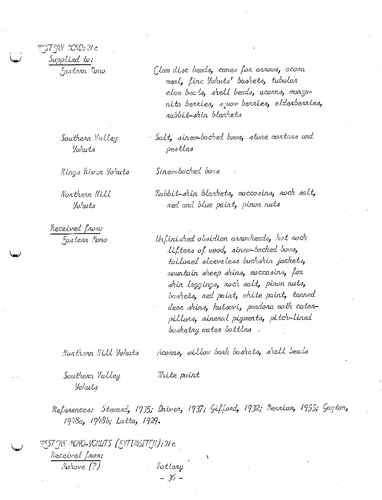 WESTERN MONO: 21c
Supplied to:
Eastern Mono Clam disc beads, canes for arrows, acorn
meal, fine Yokuts' baskets, tubular
clam beads, shell beads, acorns, manza-
nita berries, squaw berries, elderberries,
rabbit-skin blankets
Southern Valley Salt, sinew-backed bows, stone mortars and
Yokuts pestles
Kings River Yokuts Sinew-backed bows
Northern Hill Rabbit-skin blankets, moccasins, rock salt,
Yokuts red and blue paint, pinon nuts
Received from:
Eastern Mono Unfinished obsidian arrowheads, hot rock
lifters of wood, sinew-backed bows,
tailored sleeveless buckskin jackets,
mountain sheep skins, moccasins, fox
skin leggings, rock salt, pinon nuts,
baskets, red paint, white paint, tanned
deer skins, kutsavi, pandora moth cater-
pillars, mineral pigments, pitch-lined
basketry water bottles
Northern Hill Yokuts Acorns, willow bark baskets, shell beads
Southern Valley White paint
Yokuts
References: Steward, 1935; Driver, 1937; Gifford, 1932; Merriam, 1955; Gayton,
1948a, 1948b; Latta, 1929.
MONO-YOKUTS 21c
Received from:
Mohave (?) Pottery